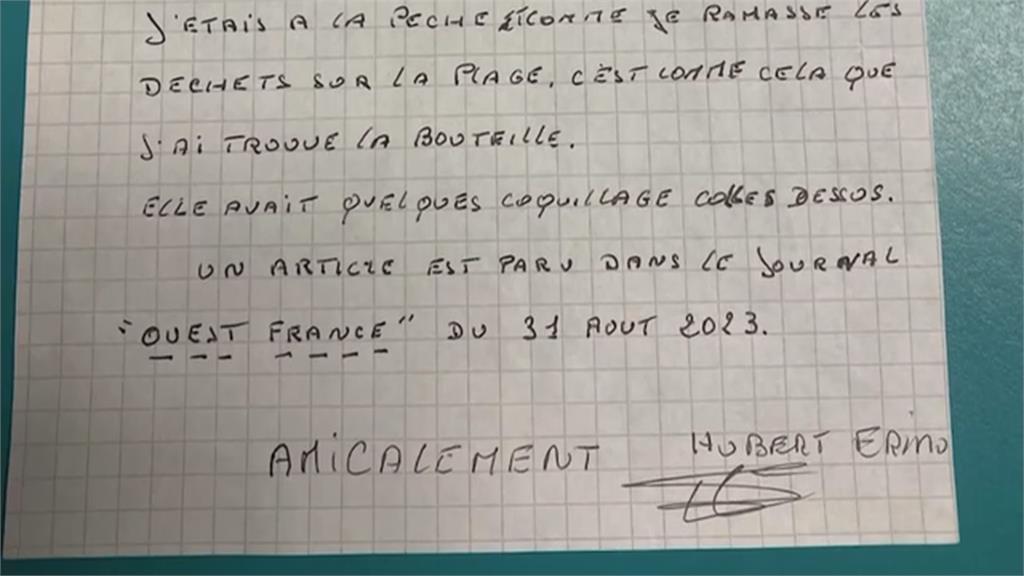 J'ETAIS A LA PECHE ET COMME JE RAMASSE LES
DECHETS SUR LA PLAGE, C'EST COMME CELA QUE
J'AI TROUVE LA BOUTEILLE.
ELLE AVAIT QUELQUES COQUILLAGE COLLES DESSUS.
UN ARTICLE EST PARU DANS LE JOURNAL
"OUEST FRANCE" DU 31 AOUT 2023.
AMICALEMENT HUBERT